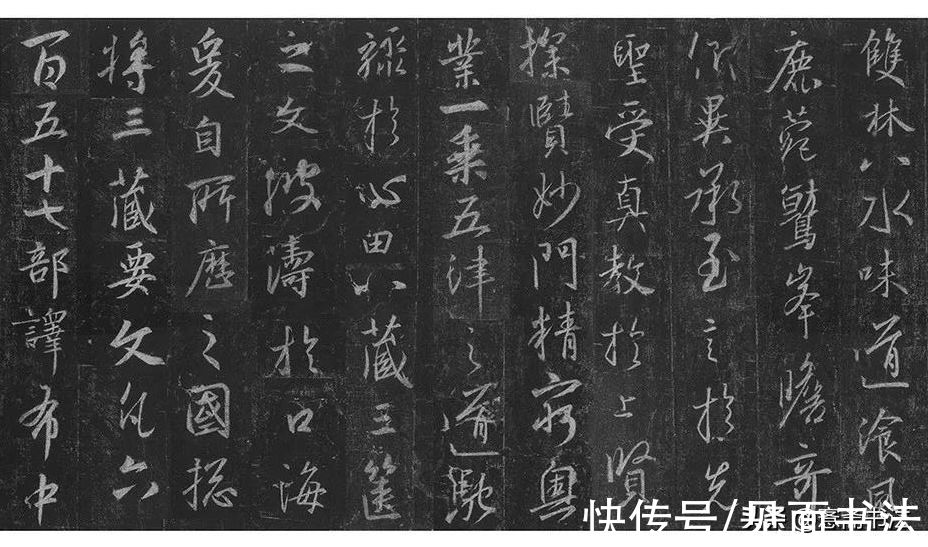 雙林八水味道湌風
鹿菀鷲峯瞻奇
仰異承至言於先
聖受真教於上賢
探賾妙門精窮奧
業一乘五律之道馳
驟於心田八藏三篋
之文波濤於口海
爰自所歷之國揔
將三藏要文凡六
百五十七部譯布中
快传号/书法